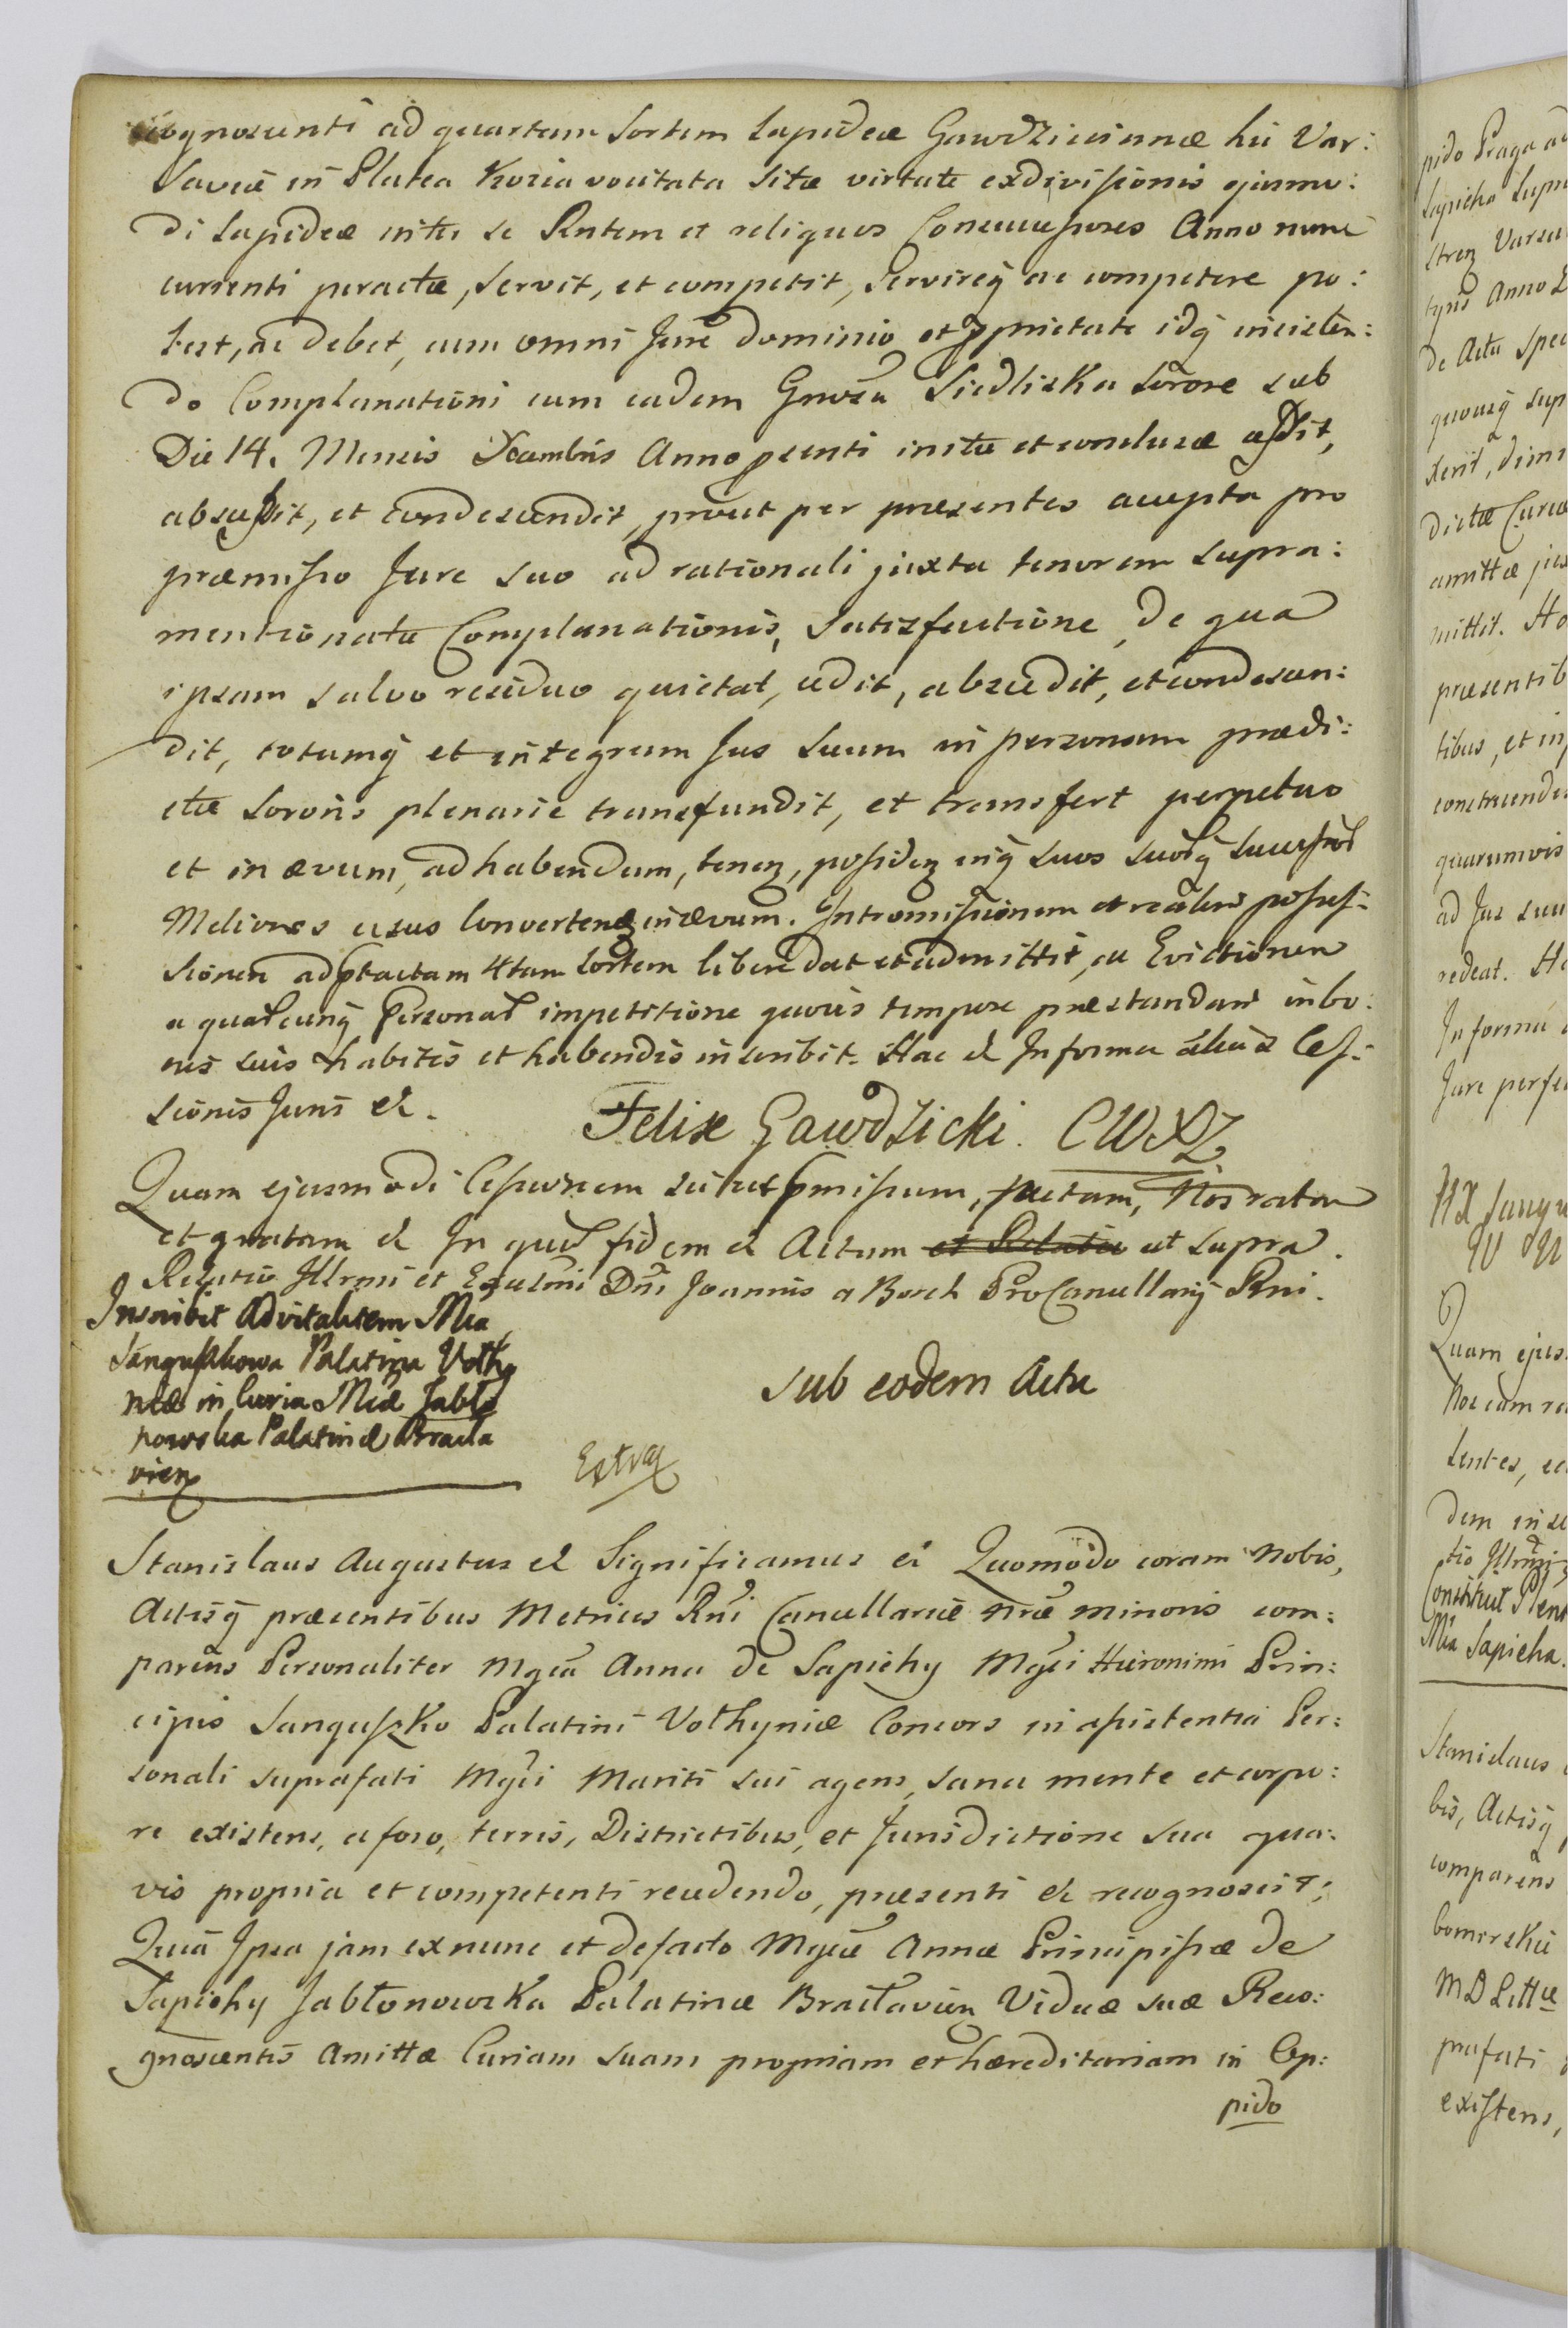 cognoscenti ad quartam Sortem Lapideæ Gawdzicianæ hic Var:
saviæ in Platea Kozia vocitata sitæ virtute exdivisionis ejusmo:
di Lapideæ inter se Rntem et reliquos Consuccessores Anno nunc
currenti peractæ, servit, et competit, servireq ac competere po:
test, ac debet, cum omni Jure dominio et pprietate idq insisten:
do Complanationi cum eadem Gnosa Siedliska Sorore sub
Die 14. Mensis Xcambris Anno psenti initæ et conclusæ cessit,
abscessit, et condescendit, prout per præsentes accepta pro
præmisso Jure suo ad rationali juxta tenorem supra:
mentionatæ Complanationis, Satisfactione, de qua
ipsam salvo residuo quietat, cedit, abscedit, et condescen:
dit, totumq et integrum Jus suum in personam prædi:
ctæ Sororis plenarie transfundit, et transfert perpetuo
et in ævum, ad habendum, tenen, possiden inq suos suorq success
Meliores usus convertend in ævum. Intromissionem et realem posses:
sionem ad ptactam 4tam Sortem libere dat et admittit, ac Evictionem
a qualcunq Personal impetitione quovis tempore præstandam in bo:
nis suis habitis et habendis inscribit. Hac et In forma alias Ces:
sionis Juris et.
Felix Gawdzicki. CWXZ
Quam ejusmodi Cessionem sicut pmissum, factam, Nos ratam
et gratam et In quor fidem et Actum et Relatio ut supra.
Relatio Illrmi et Excelsmi Dni Joannis a Borch ProCancellarij Rni.
Inscribit advitalitatem Mca
Sanguszkowa Palatina Volhy
niæ in Curia Mcæ Jabło
nowska Palatinæ Bracła
vien
Sub eodem Actu
Extra
Stanislaus Augustus et Significamus et Quomodo coram Nobis,
Actisq præsentibus Metrices Rni Cancellariæ nræ minoris com:
parens Personaliter Mgca Anna de Sapiehy Mgci Hieronimi Prin:
cipis Sanguszko Palatini Volhyniæ Consors in assistentia Per:
sonali suprafati Mgci Mariti sui agens, sana mente et corpo:
re existens, a foro, terris, Districtibus, et Jurisdictione sua qua:
vis propria et competenti recedendo, præsenti et recognoscit;
Quia Ipsa jam ex nunc et de facto Mgcæ Annæ Principissæ de
Sapiehy Jabłonowska Palatinæ Bracłavien Viduæ suæ Reco:
gnoscentis Amittæ Curiam suam propriam et hæreditariam in Op:
pido
pido Praga ad
Sapieha Supr
stren Varsa
tynd Anno D
de Actu spec
quousq sup
xerit, dimi
dictæ Curiæ
amittæ jux
mittit. Ho
præsentib
tibus, et in
construendis
quarumvis
ad Jus suu
redeat. Ha
In forma
Jure perfe
Quam ejus
Nos eam ra
lentes, ea
dem in
tio Illrmi
Constituit Plent
Mca Sapieha.
Stanislaus
bis, Actisq
comparens
M D Littuæ
præfati
existens,